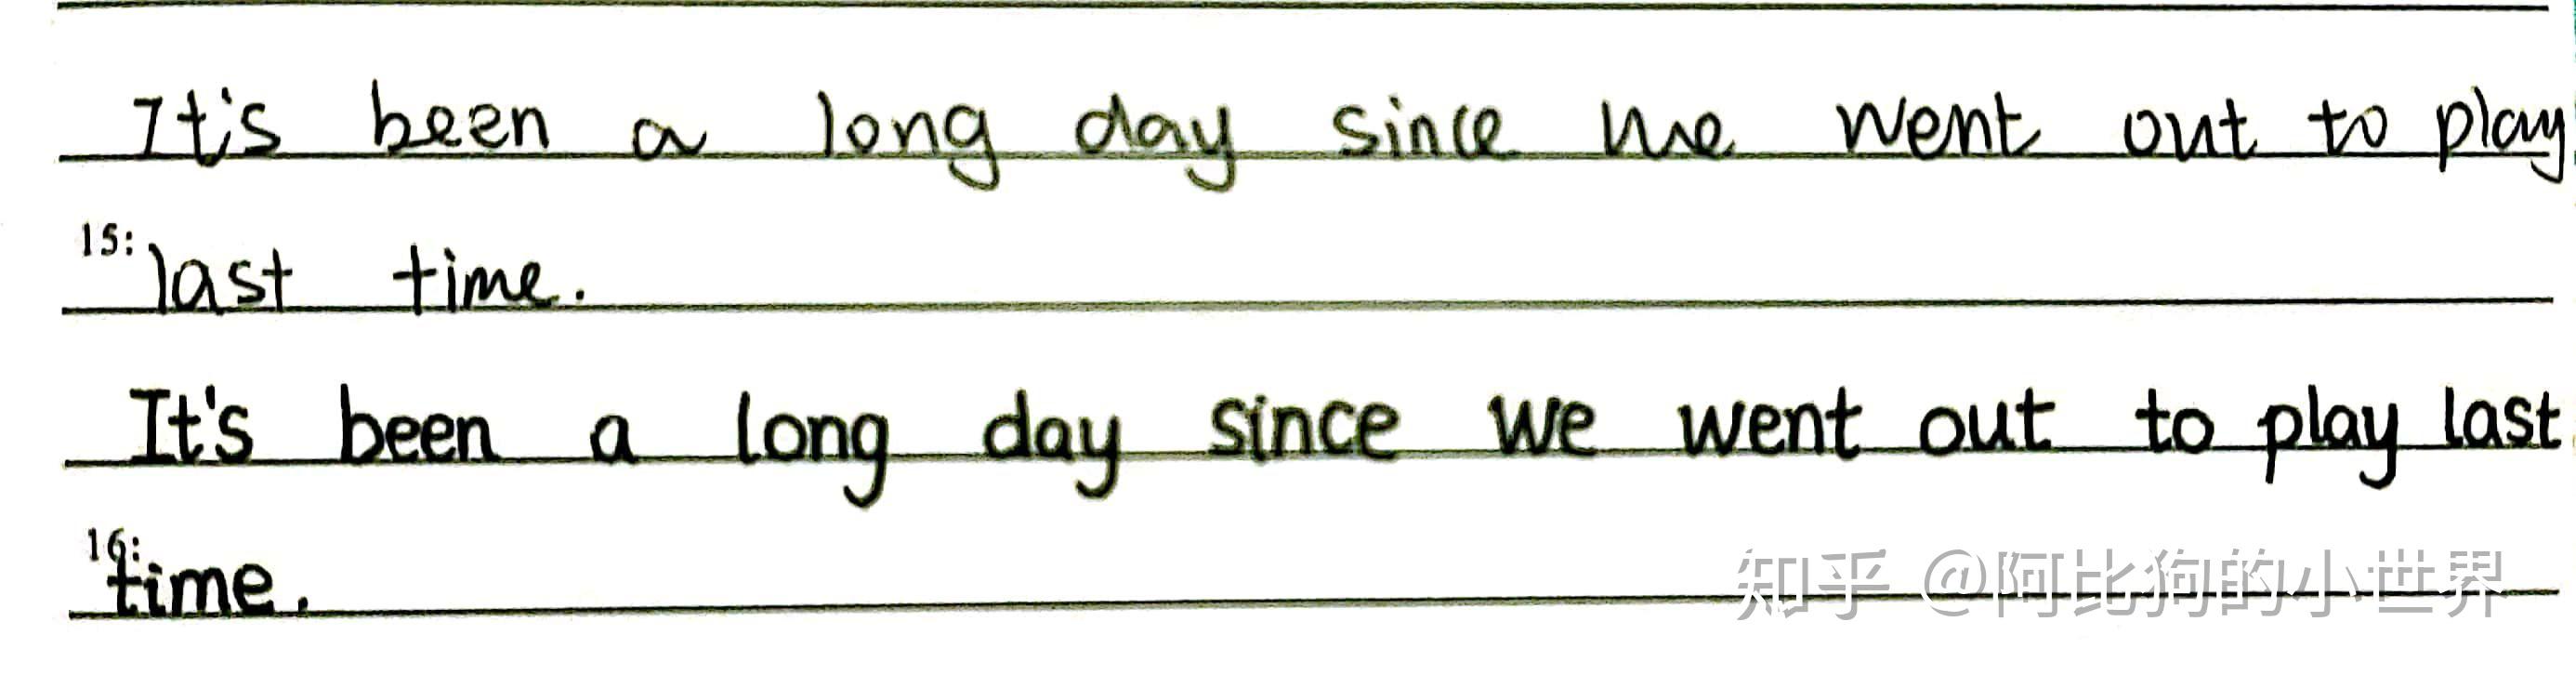 It's been a long day since we went out to play
15:
last time.
It's been a long day since we went out to play last
16:
time.
知乎 @阿比狗的小世界